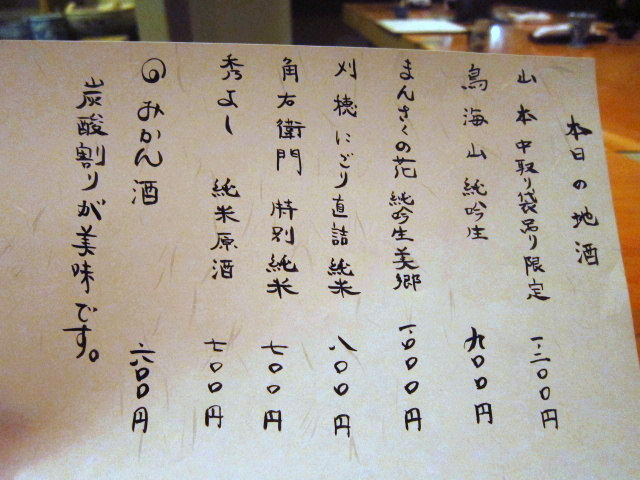 本日の地酒
山本 中取り袋吊り限定 一二〇〇円
鳥海山 純吟生 九〇〇円
まんさくの花 純吟生美郷 一〇〇〇円
刈穂にごり直詰純米 八〇〇円
角右衛門 特別純米 七〇〇円
秀よし 純米原酒 七〇〇円
みかん酒 六〇〇円
炭酸割りが美味です。